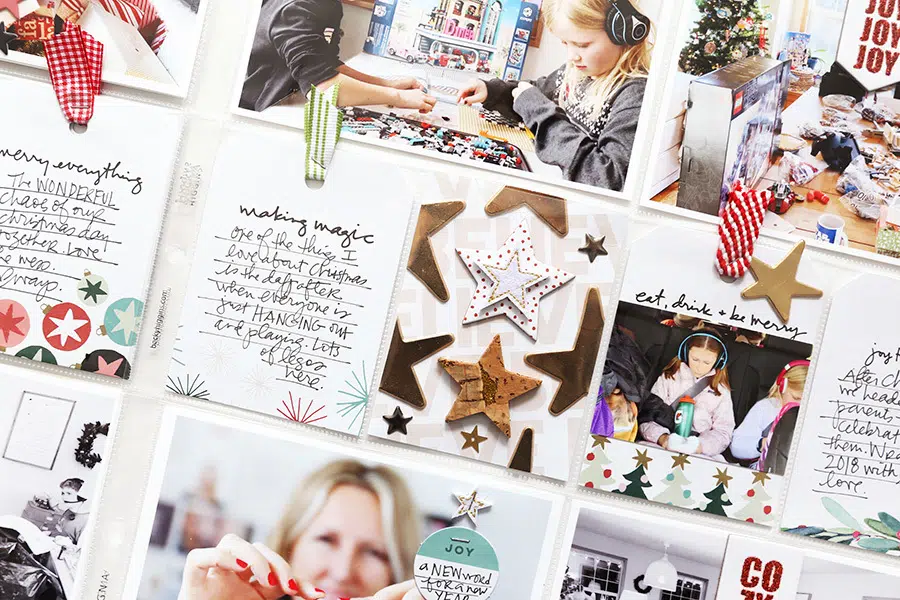 JOY
JOY
JOY
merry everything
The WONDERFUL
chaos of our
christmas day
together. Love
the mess.
Always.
making magic
one of the things I
love about Christmas
is the day after
when everyone is
just HANGING out
and playing lots
of legos
here.
eat, drink + be merry
After Ch
we heade
parents
celebrat
them. Wra
2018 with
love.
JOY
a NEW word
for a new
YEAR
CO
ZY
beckyhiggins.com